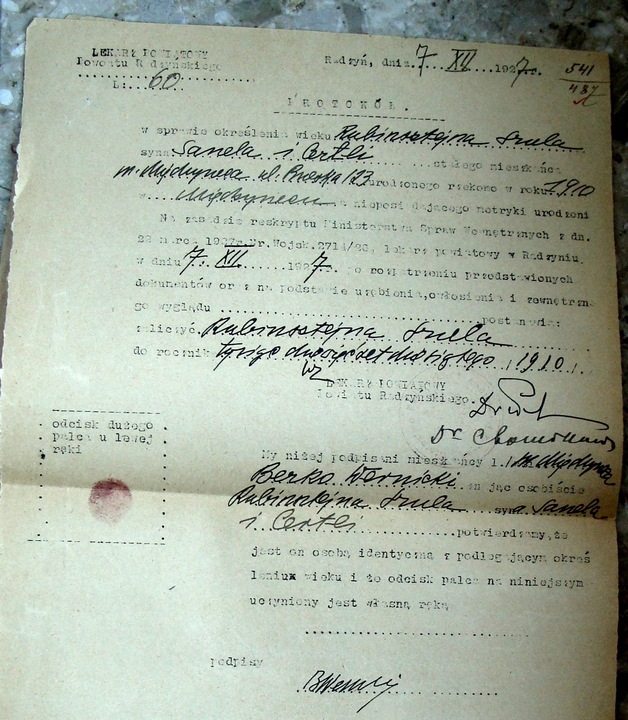 LEKARZ POWIATOWY
Powiatu Radzyńskiego
L: 60.
Radzyń, dnia 7 XII 1927r.
541
487
PROTOKÓŁ.
w sprawie określenia wieku Rubinsztejna Szula
syna Sanela i Certli stałego mieszkańca
m. Międzyrzeca ul. Brzeska 123 urodzonego rzekomo w roku 1910
w Międzyrzecu a nieposiadającego metryki urodzeni
Na zasadzie reskryptu Ministerstwa Spraw Wewnętrznych z dn.
22 marca 1927r. Nr. Wojsk. 2714/26, lekarz powiatowy w Radzyniu,
w dniu 7. XII. 1927. po rozpatrzeniu przedstawionych
dokumentów oraz na podstawie uzębienia, owłosienia i zewnętrzne
go wyglądu postanowia:
zaliczyć Rubinsztejna Szula
do rocznik tysiąc dziewięćset dziesiątego /1910/.
wz
LEKARZ POWIATOWY
Powiatu Radzyńskiego.
Dr
odcisk dużego
palca u lewej
ręki
My niżej podpisani mieszkańcy m. Międzyrzeca
Berko Wernicki znając osobiście
Rubinsztejna Szula syna Sanela
i Certli potwierdzamy, że
jest on osobą identyczną z podlegającym okreś
leniu wieku i że odcisk palca na niniejszym
uczyniony jest własną ręką
podpisy
BWernicki